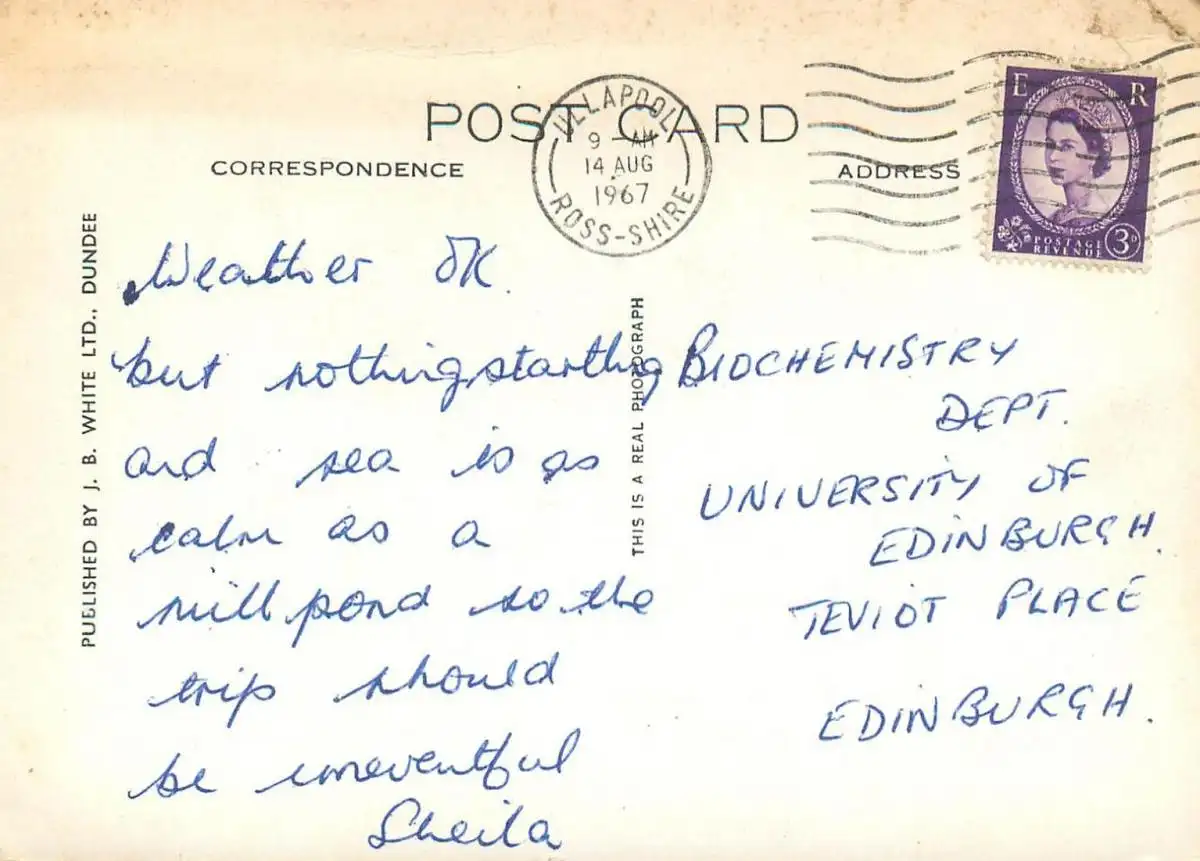 POST CARD
CORRESPONDENCE
ADDRESS
ULLAPOOL
9 - AM
14 AUG
1967
ROSS-SHIRE
E R
POSTAGE
REVENUE
3D
PUBLISHED BY J. B. WHITE LTD., DUNDEE
Weather OK.
but nothing startling
and sea is as
calm as a
mill pond so the
trip should
be uneventful
Sheila
THIS IS A REAL PHOTOGRAPH
BIOCHEMISTRY
DEPT.
UNIVERSITY OF
EDINBURGH.
TEVIOT PLACE
EDINBURGH.